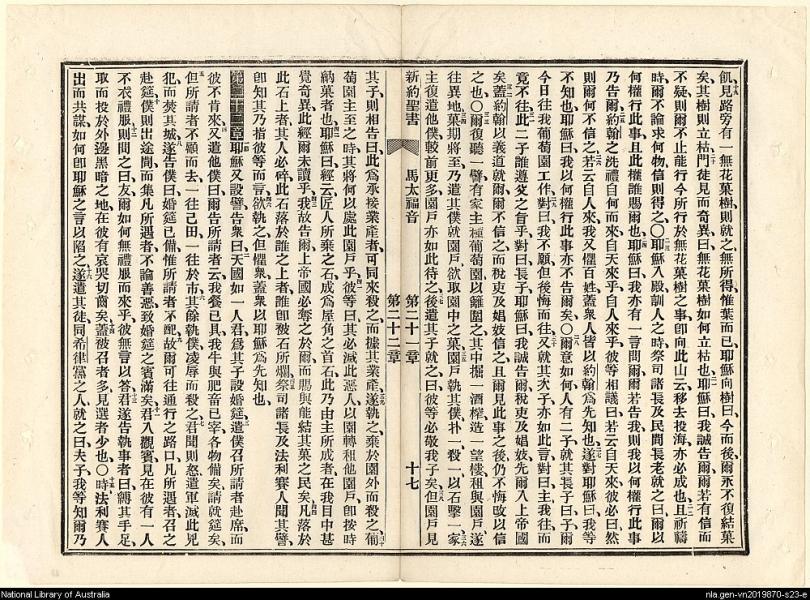 飢見路旁有一無花菓樹則就之無所得惟葉而已耶穌向樹曰今而後爾永不復結菓
矣其樹則立枯門徒見而奇異曰無花菓樹如何立枯也耶穌曰我誠告爾爾若有信而
不疑則爾不止能行今所行於無花菓樹之事卽向此山云移去投海亦必成也且祈禱
時爾不論求何物信則得之〇耶穌入殿訓人之時祭司諸長及民間長老就之曰爾以
何權行此事且此權誰賜爾也耶穌曰我亦有一言問爾爾若告我則我以何權行此事
乃告爾約翰之洗禮自何而來自天來乎自人來乎彼等相議曰若云自天來彼必曰然
則爾何不信之若云自人來我又懼百姓蓋衆人皆以約翰爲先知也遂對耶穌曰我等
不知也耶穌曰我以何權行此事亦不告爾矣〇爾意如何人有二子就其長子曰子爾
今日往我葡萄園工作對曰我不願但後悔而往又就其次子亦如此言對曰主我往而
竟不往此二子誰遵父之旨乎對曰長子耶穌曰我誠告爾稅吏及娼妓先爾入上帝國
矣蓋約翰以義道就爾爾不信之而稅吏及娼妓信之且爾見此事之後仍不悔改以信
之也〇爾復聽一譬有家主種葡萄園以籬圍之其中掘一酒榨造一望樓租與園戶遂
往異地菓期將至乃遣其僕就園戶欲取園中之菓園戶執其僕扑一殺一以石擊一家
主復遣他僕較前更多園戶亦如此待之後遣其子就之曰彼等必敬我子矣但園戶見
新約聖書 馬太福音 第二十一章 第二十二章 十七
其子則相告曰此爲承接業產者可同來殺之而據其業產遂執之棄於園外而殺之葡
萄園主至之時其將何以處此園戶乎彼等曰其必滅此惡人以園轉租他園戶卽按時
納菓者也耶穌曰經云匠人所棄之石成爲屋角之首石此乃由主所成者在我目中甚
覺奇異此經爾未讀乎我故告爾上帝國必奪之於爾而賜與能結其菓之民矣凡落於
此石上者其人必碎此石落於誰之上者誰卽被石所爛祭司諸長及法利賽人聞其譬
卽知其乃指彼等而言欲執之但懼衆蓋衆以耶穌爲先知也
第二十二章耶穌又設譬告衆曰天國如一人君爲其子設婚筵遣僕召所請者赴席而
彼不肯來又遣他僕曰爾告所請者云我餐已具我牛與肥畜已宰各物備矣請就筵矣
但所請者不顧而去一往己田一往於市其餘執僕凌辱而殺之君聞則怒遣軍滅此兇
犯而焚其城遂告僕曰婚筵已備惟所請者不配故爾可往通行之路口凡所遇者召之
赴筵僕則出途間而集凡所遇者不論善惡致婚筵之賓滿矣君入觀賓見在彼有一人
不衣禮服則問之曰友爾如何無禮服而來乎彼無言以答君遂告執事者曰縛其手足
取而投於外邊黑暗之地在彼有哀哭切齒矣蓋被召者多見選者少也〇時法利賽人
出而共謀如何卽耶穌之言以陷之遂遣其徒同希律黨之人就之曰夫子我等知爾乃
National Library of Australia
nla.gen-vn2019870-s23-e